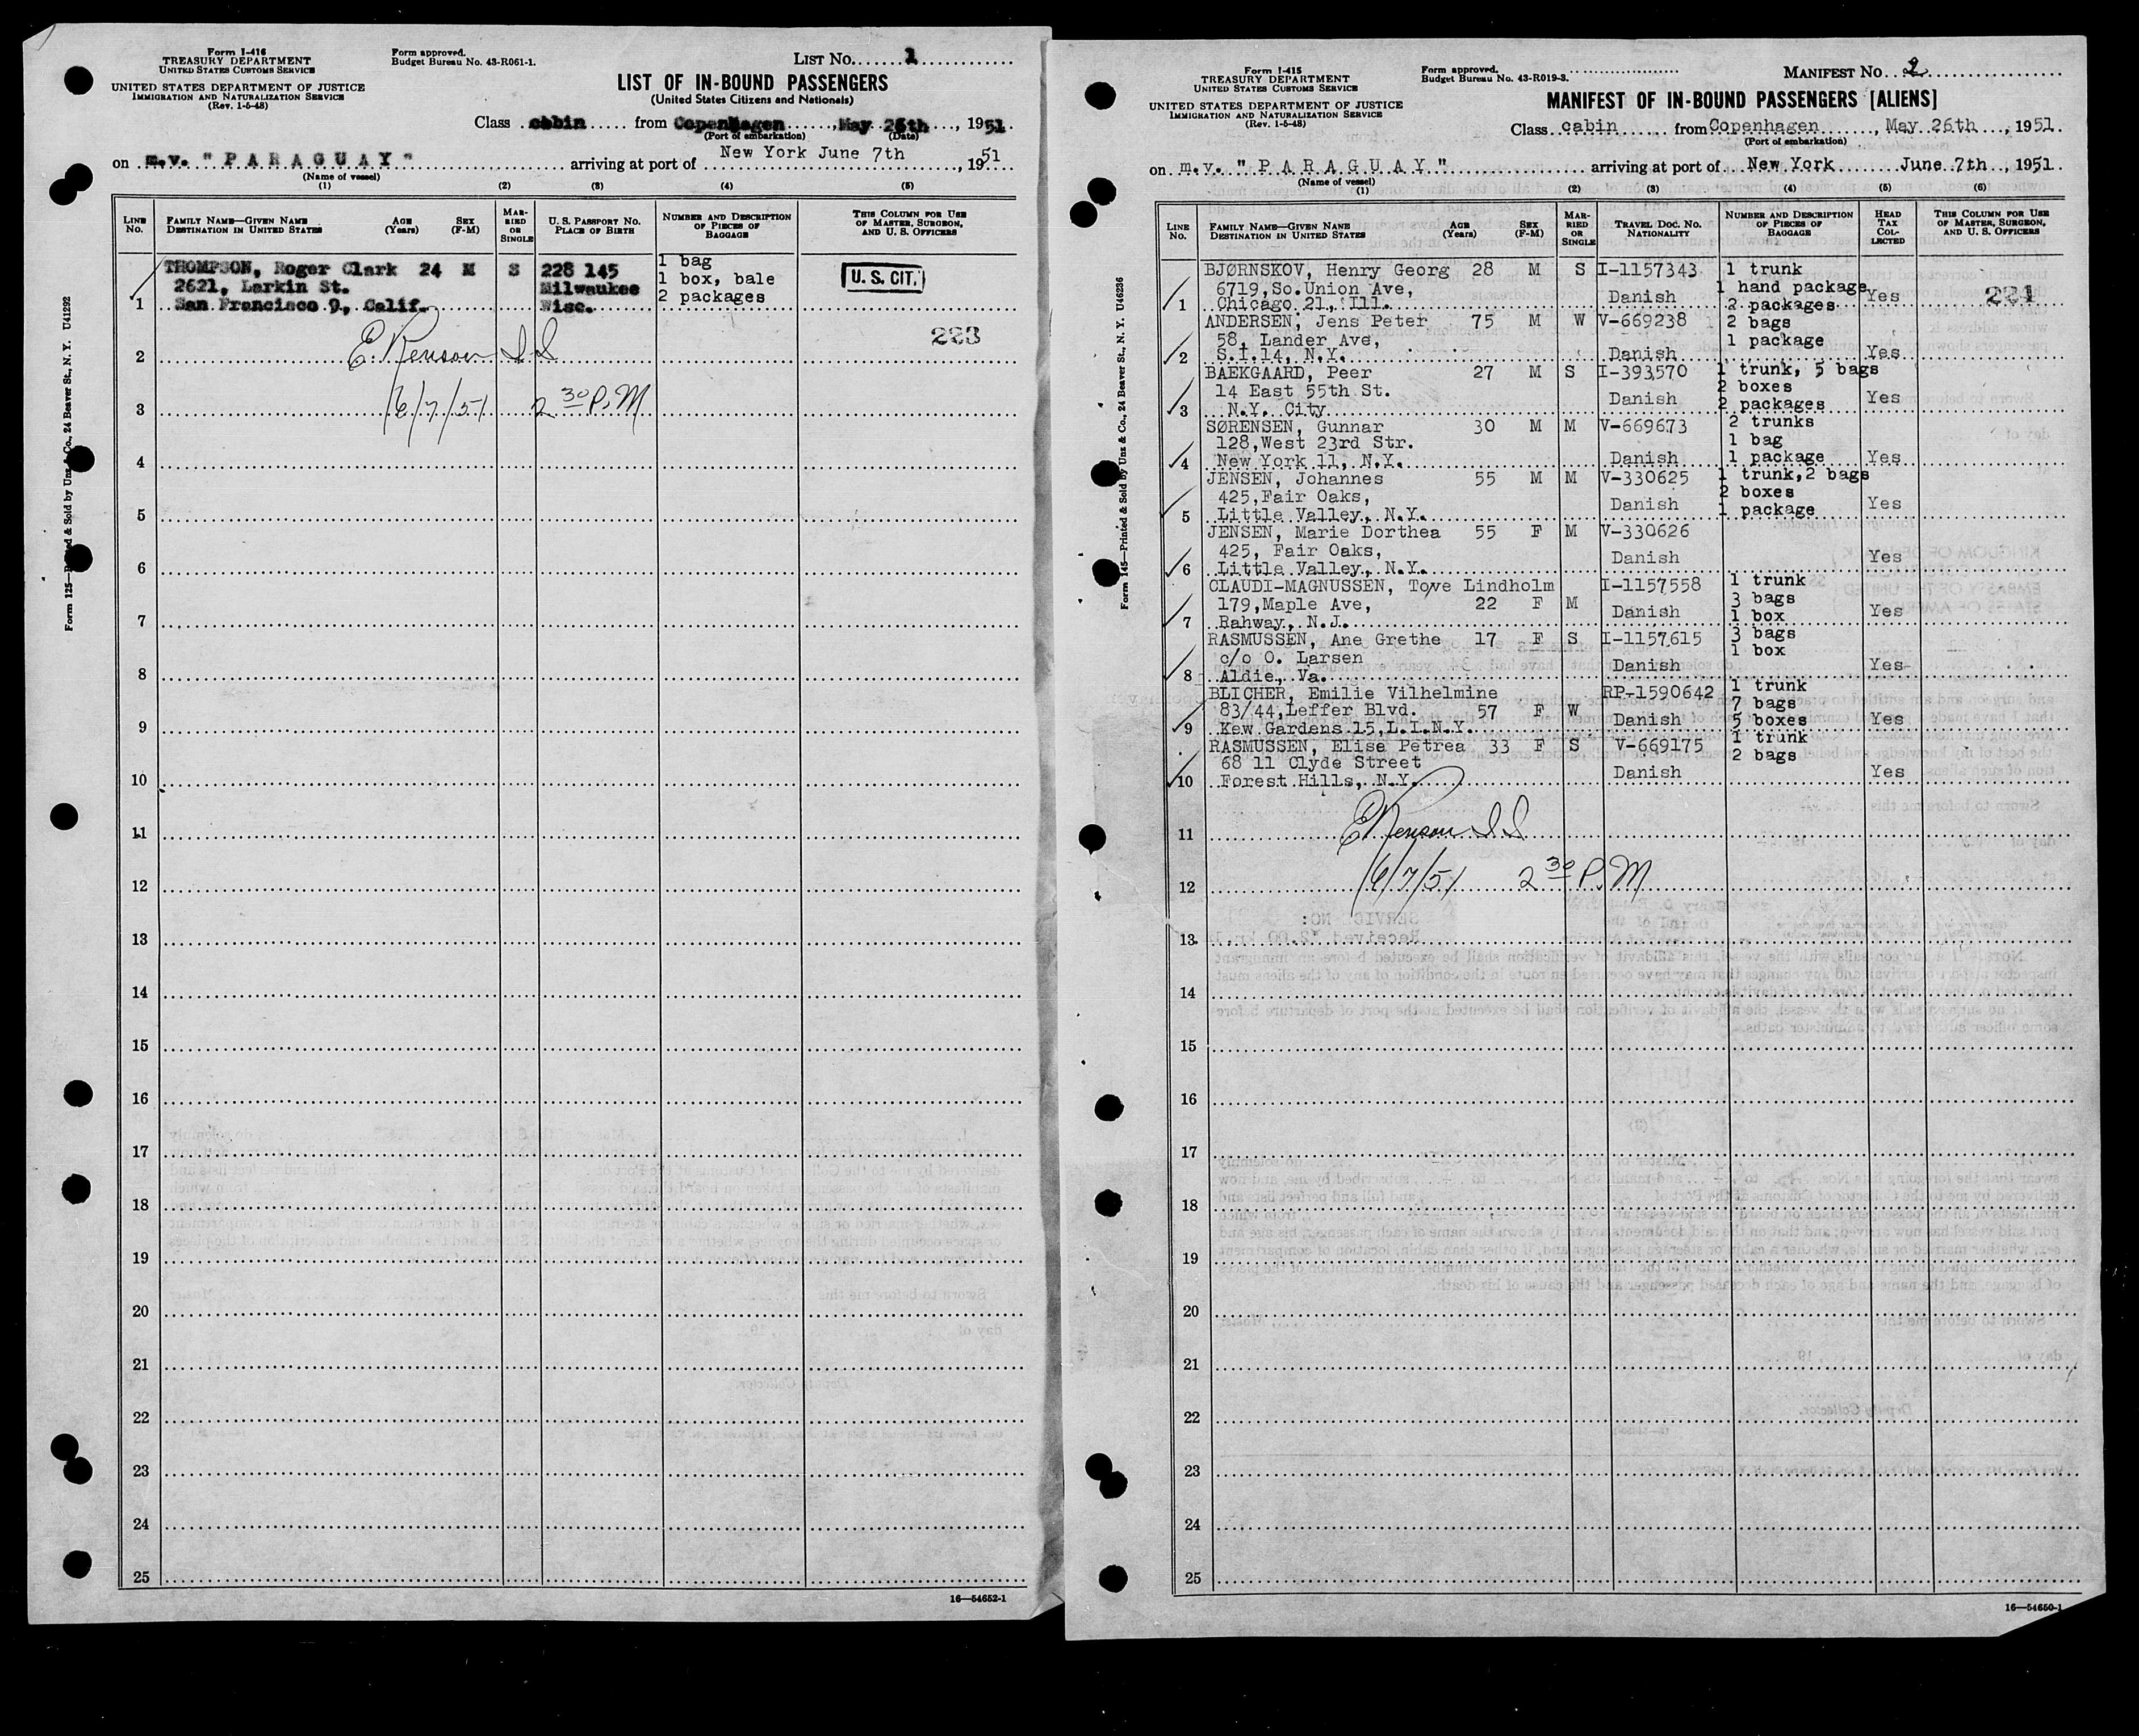 Form I-416
TREASURY DEPARTMENT
UNITED STATES CUSTOMS SERVICE
UNITED STATES DEPARTMENT OF JUSTICE
IMMIGRATION AND NATURALIZATION SERVICE
(Rev. 1-5-48)
Form approved.
Budget Bureau No. 43-R061-1.
LIST NO. 1
LIST OF IN-BOUND PASSENGERS
(United States Citizens and Nationals)
Class cabin from Copenhagen, May 26th, 1951.
(Port of embarkation) (Date)
on m.v. "PARAGUAY" arriving at port of New York June 7th, 1951
(Name of vessel)
(1) (2) (3) (4) (5)
LINE NO.
FAMILY NAME—GIVEN NAME
DESTINATION IN UNITED STATES
AGE (Years)
SEX (F-M)
MARRIED OR SINGLE
U. S. PASSPORT NO.
PLACE OF BIRTH
NUMBER AND DESCRIPTION OF PIECES OF BAGGAGE
THIS COLUMN FOR USE OF MASTER, SURGEON, AND U. S. OFFICERS
THOMPSON, Roger Clark 24 M S 228 145 1 bag
2621, Larkin St. Milwaukee 1 box, bale U. S. CIT.
1 San Francisco 9, Calif. Wisc. 2 packages
223
2 E. Renson I S
3 6/7/51 2 30 P.M
4
5
6
7
8
9
10
11
12
13
14
15
16
17
18
19
20
21
22
23
24
25
16—54652-1
Form 125—Printed & Sold by Unz & Co., 24 Beaver St., N. Y. U41292
Form I-415
TREASURY DEPARTMENT
UNITED STATES CUSTOMS SERVICE
UNITED STATES DEPARTMENT OF JUSTICE
IMMIGRATION AND NATURALIZATION SERVICE
(Rev. 1-5-48)
Form approved.
Budget Bureau No. 43-R019-3.
MANIFEST NO. 2
MANIFEST OF IN-BOUND PASSENGERS [ALIENS]
Class cabin from Copenhagen, May 26th, 1951.
(Port of embarkation)
on m.v. "PARAGUAY" arriving at port of New York June 7th, 1951.
(Name of vessel)
(1) (2) (3) (4) (5) (6)
LINE NO.
FAMILY NAME—GIVEN NAME
DESTINATION IN UNITED STATES
AGE (Years)
SEX (F-M)
MARRIED OR SINGLE
TRAVEL DOC. NO.
NATIONALITY
NUMBER AND DESCRIPTION OF PIECES OF BAGGAGE
HEAD TAX COLLECTED
THIS COLUMN FOR USE OF MASTER, SURGEON, AND U. S. OFFICERS
BJØRNSKOV, Henry Georg 28 M S I-1157343 1 trunk
6719, So.Union Ave, Danish 1 hand package Yes 224
1 Chicago 21, Ill. 2 packages
ANDERSEN, Jens Peter 75 M W V-669238 2 bags
58, Lander Ave, 1 package
2 S.I.14, N.Y. Danish Yes
BAEKGAARD, Peer 27 M S I-393570 1 trunk, 5 bags
14 East 55th St. 2 boxes
3 N.Y. City Danish 2 packages Yes
SØRENSEN, Gunnar 30 M M V-669673 2 trunks
128,West 23rd Str. 1 bag
4 New York 11, N.Y. Danish 1 package Yes
JENSEN, Johannes 55 M M V-330625 1 trunk,2 bags
425,Fair Oaks, 2 boxes
5 Little Valley, N.Y. Danish 1 package Yes
JENSEN, Marie Dorthea 55 F M V-330626
425, Fair Oaks, Danish Yes
6 Little Valley, N.Y.
CLAUDI-MAGNUSSEN, Tove Lindholm I-1157558 1 trunk
179,Maple Ave, 22 F M 3 bags
7 Rahway, N.J. Danish 1 box Yes
RASMUSSEN, Ane Grethe 17 F S I-1157615 3 bags
c/o O. Larsen 1 box
8 Aldie, Va. Danish Yes
BLICHER, Emilie Vilhelmine RP-1590642 1 trunk
83/44,Leffer Blvd. 57 F W 7 bags
9 Kew Gardens 15,L.I.N.Y. Danish 5 boxes Yes
RASMUSSEN, Elise Petrea 33 F S V-669175 1 trunk
68 11 Clyde Street 2 bags
10 Forest Hills, N.Y. Danish Yes
11 E Renson I S
12 6/7/51 2 30 P.M
13
14
15
16
17
18
19
20
21
22
23
24
25
16—54650-1
Form 145—Printed & Sold by Unz & Co., 24 Beaver St., N. Y. U46236